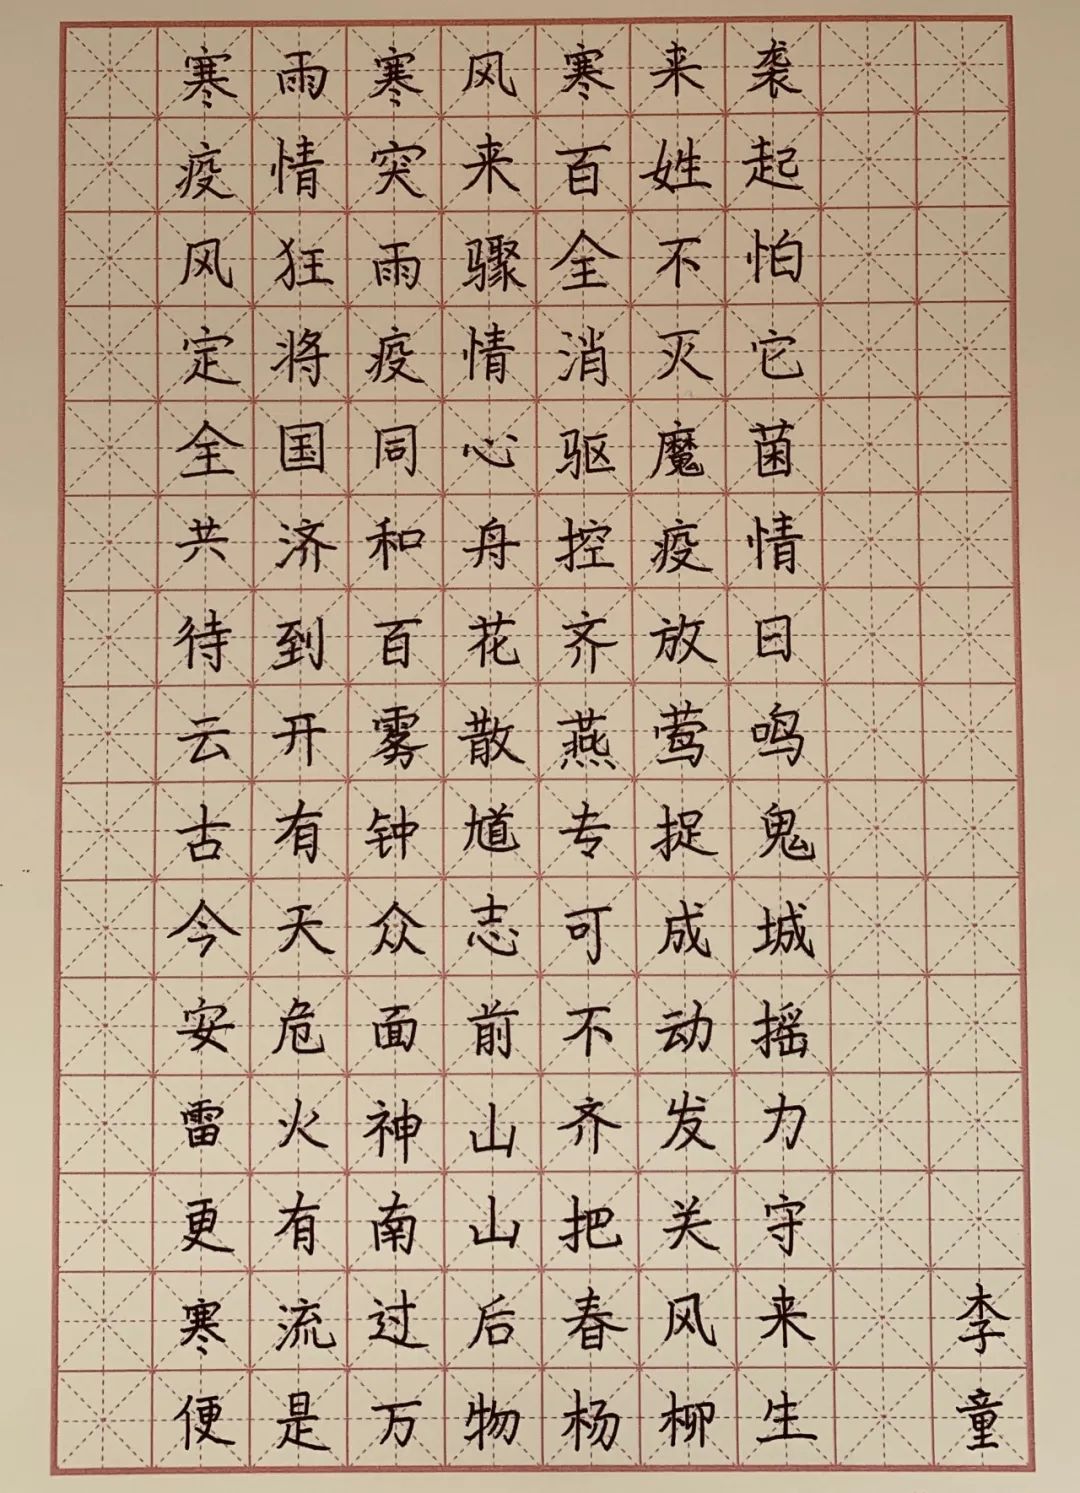 寒雨寒风寒来袭
疫情突来百姓起
风狂雨骤全不怕
定将疫情消灭它
全国同心驱魔菌
共济和舟控疫情
待到百花齐放日
云开雾散燕莺鸣
古有钟馗专捉鬼
今天众志可成城
安危面前不动摇
雷火神山齐发力
更有南山把关守
寒流过后春风来
便是万物杨柳生
李童